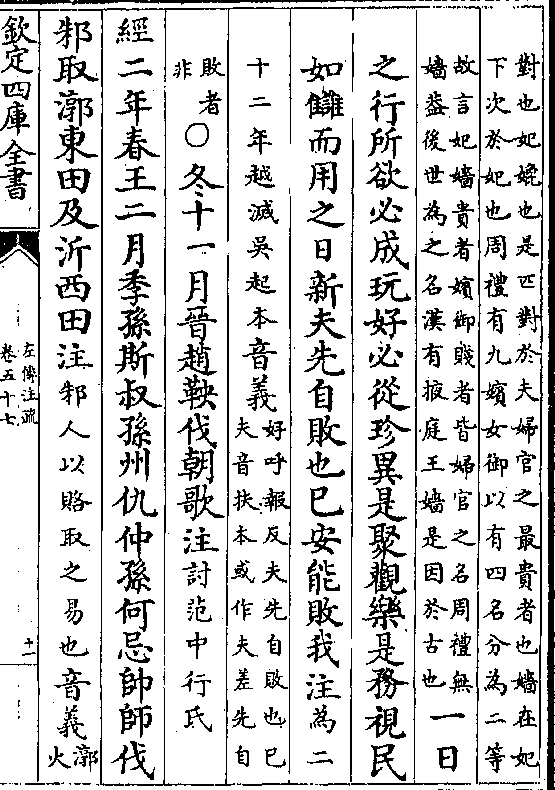 對也妃媲也是匹對於夫婦官之最貴者也嬙在妃
下次於妃也周禮有九嬪女御以有四名分為二等
故言妃嬙貴者嬪御賤者皆婦官之名周禮無
嬙葢後世為之名漢有掖庭王嬙是因於古也
一日
之行所欲必成玩好必從珍異是聚觀樂是務視民
如讎而用之日新夫先自敗也已安能敗我注
為二
十二年越滅吳起本
音義
好呼報反夫先自敗也已
夫音扶本或作夫差先自
敗者
非
○冬十一月晉趙鞅伐朝歌注
討范中行氏
經二年春王二月季孫斯叔孫州仇仲孫何忌帥師伐
邾取漷東田及沂西田注
邾人以賂取之易也
音義
漷
火
欽定四庫全書
左傳注疏
卷五十七
十一